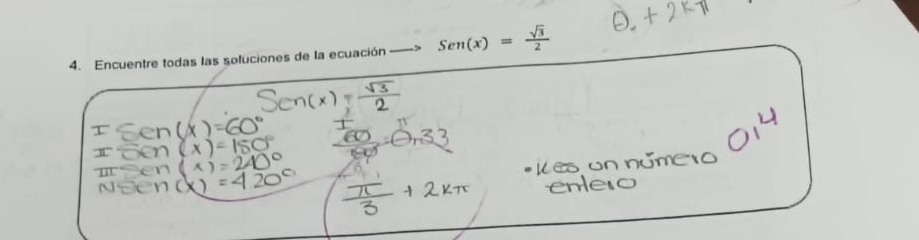 θ. + 2kπ
4. Encuentre todas las soluciones de la ecuación ⟶ Sen(x) = √3/2
Sen(x) = √3/2
I Sen(x)=60°
II Sen(x)=150°
III Sen(x)=240°
IV Sen(x)=420°
I
0,33
π/3 + 2kπ
•K es un número
entero
0,4